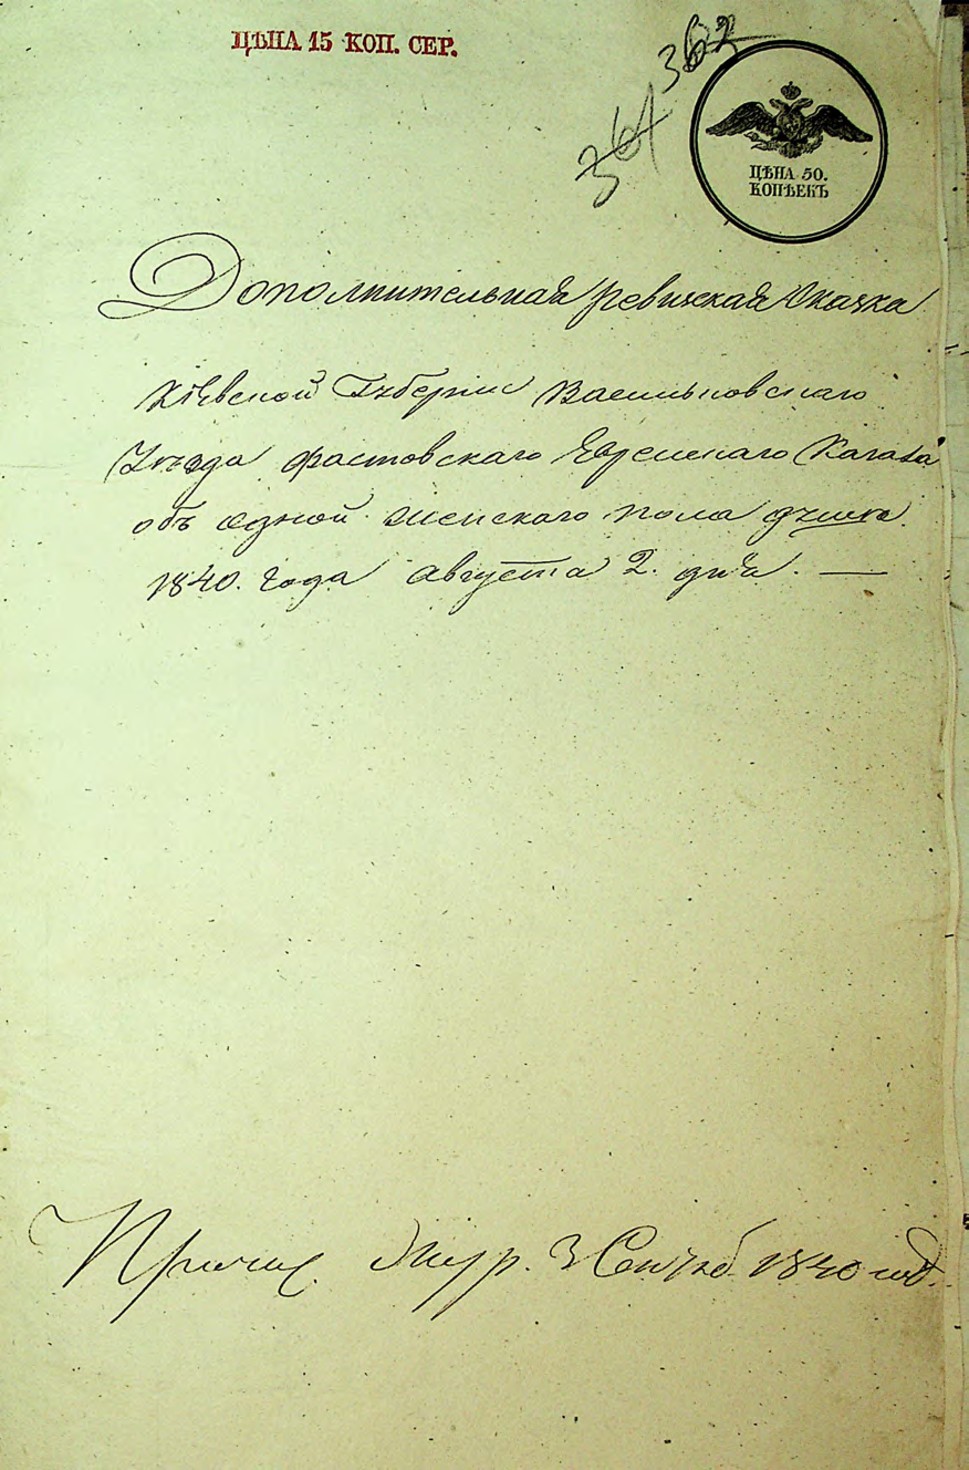 ЦѢНА 15 КОП. СЕР.
362
361
ЦѢНА 50.
КОПѢЕКЪ
Дополнительная ревизская Сказка
Кіевской Губерніи Васильковскаго
Уѣзда Фастовскаго Еврейскаго Кагала
объ одной женскаго пола душѣ.
1840. Года Августа 2. дня. —
3 Сентяб. 1840 год.